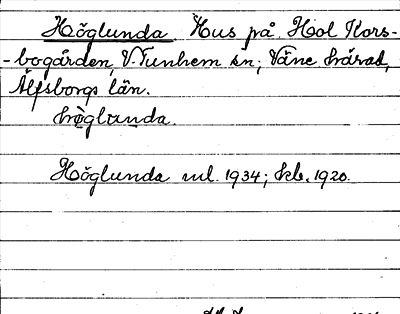 Höglunda Hus på Hol Kors-
-bogården, V. Tunhem sn; Väne härad,
Älfsborgs län.
hö̀glunda.
Höglunda ul. 1934; skb. 1920.